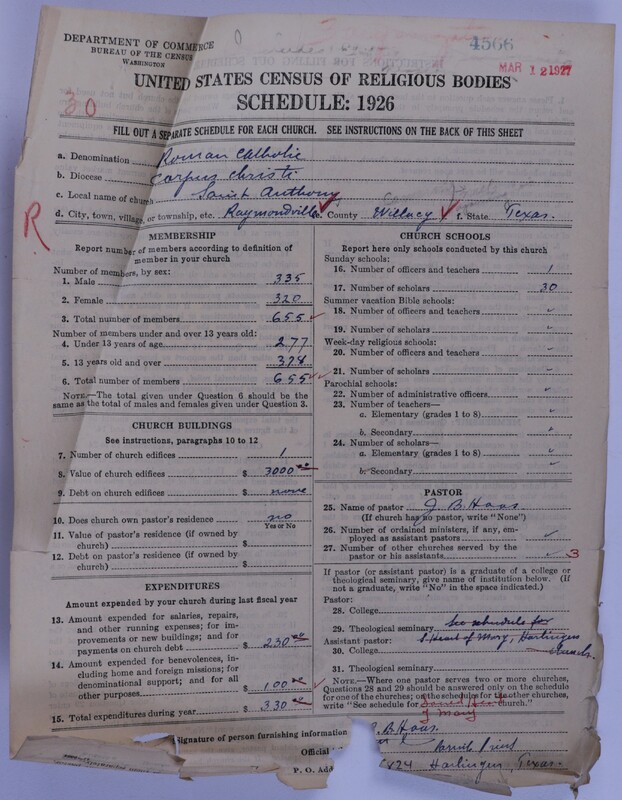 4566
MAR 12 1927
DEPARTMENT OF COMMERCE
BUREAU OF THE CENSUS
WASHINGTON
UNITED STATES CENSUS OF RELIGIOUS BODIES
SCHEDULE: 1926
30
FILL OUT A SEPARATE SCHEDULE FOR EACH CHURCH. SEE INSTRUCTIONS ON THE BACK OF THIS SHEET
a. Denomination Roman Catholic
b. Diocese Corpus Christi
c. Local name of church Saint Anthony
d. City, town, village, or township, etc. Raymondville e. County Willacy f. State Texas.
R
MEMBERSHIP
Report number of members according to definition of
member in your church
Number of members, by sex:
1. Male 335
2. Female 320
3. Total number of members 655
Number of members under and over 13 years old:
4. Under 13 years of age 277
5. 13 years old and over 378
6. Total number of members 655
NOTE.—The total given under Question 6 should be the
same as the total of males and females given under Question 3.
CHURCH BUILDINGS
See instructions, paragraphs 10 to 12
7. Number of church edifices 1
8. Value of church edifices $ 3000 00
9. Debt on church edifices $ none
10. Does church own pastor's residence no
Yes or No
11. Value of pastor's residence (if owned by
church) $
12. Debt on pastor's residence (if owned by
church) $
EXPENDITURES
Amount expended by your church during last fiscal year
13. Amount expended for salaries, repairs,
and other running expenses; for im-
provements or new buildings; and for
payments on church debt $ 230 00
14. Amount expended for benevolences, in-
cluding home and foreign missions; for
denominational support; and for all
other purposes $ 100 00
15. Total expenditures during year $ 330 00
CHURCH SCHOOLS
Report here only schools conducted by this church
Sunday schools:
16. Number of officers and teachers 1
17. Number of scholars 30
Summer vacation Bible schools:
18. Number of officers and teachers
19. Number of scholars
Week-day religious schools:
20. Number of officers and teachers
21. Number of scholars
Parochial schools:
22. Number of administrative officers
23. Number of teachers—
a. Elementary (grades 1 to 8)
b. Secondary
24. Number of scholars—
a. Elementary (grades 1 to 8)
b. Secondary
PASTOR
25. Name of pastor J. B. Haas
(If church has no pastor, write "None")
26. Number of ordained ministers, if any, em-
ployed as assistant pastors
27. Number of other churches served by the
pastor or his assistants 3
If pastor (or assistant pastor) is a graduate of a college or
theological seminary, give name of institution below. (If
not a graduate, write "No" in the space indicated.)
Pastor:
28. College
29. Theological seminary See schedule for
Assistant pastor: Heart of Mary, Harlingen
30. College
31. Theological seminary
NOTE.—Where one pastor serves two or more churches,
Questions 28 and 29 should be answered only on the schedule
for one of the churches; on the schedules for the other churches,
write "See schedule for church."
of Mary
Signature of person furnishing information J. B. Haas
Official
P. O. Add Harlingen, Texas.